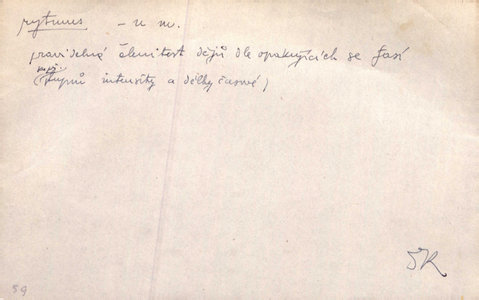 rytmus – u m.
pravidelná členitost dějů dle opakujících se fasí
(např. stupňů intensity a délky časové)
ŠK
59